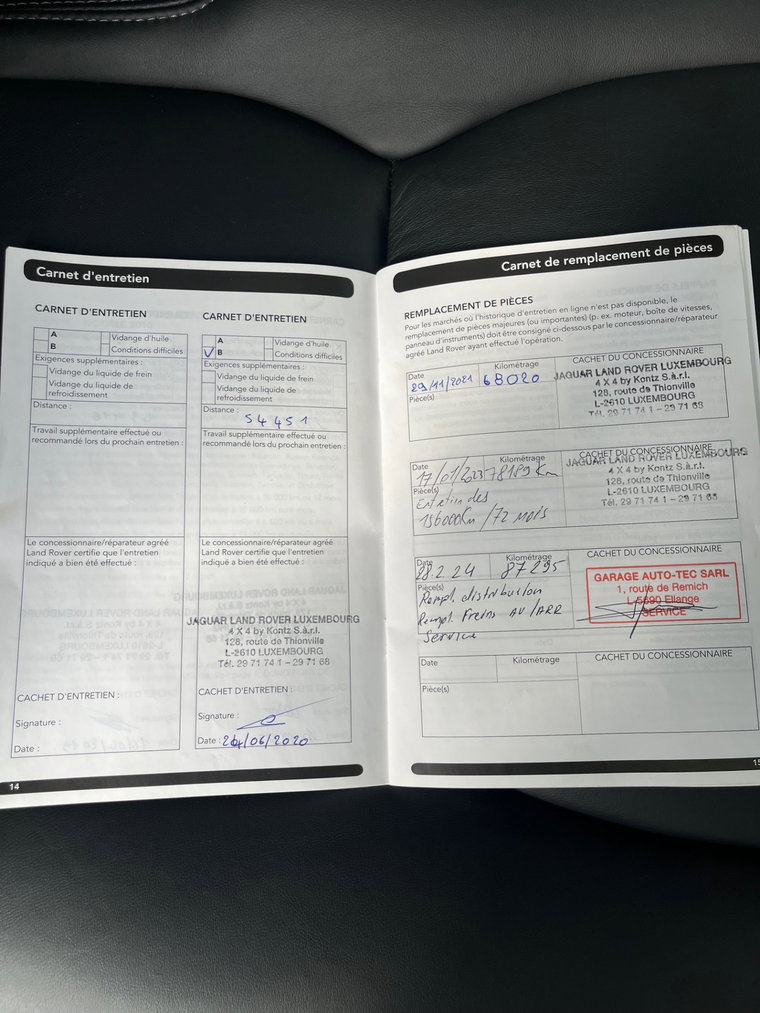 Carnet d'entretien
CARNET D'ENTRETIEN
A
Vidange d'huile
B
Conditions difficiles
Exigences supplémentaires :
Vidange du liquide de frein
Vidange du liquide de
refroidissement
Distance :
Travail supplémentaire effectué ou
recommandé lors du prochain entretien :
Le concessionnaire/réparateur agréé
Land Rover certifie que l'entretien
indiqué a bien été effectué :
CACHET D'ENTRETIEN :
Signature :
Date :
CARNET D'ENTRETIEN
A
Vidange d'huile
B
Conditions difficiles
Exigences supplémentaires :
Vidange du liquide de frein
Vidange du liquide de
refroidissement
Distance :
54451
Travail supplémentaire effectué ou
recommandé lors du prochain entretien :
Le concessionnaire/réparateur agréé
Land Rover certifie que l'entretien
indiqué a bien été effectué :
JAGUAR LAND ROVER LUXEMBOURG
4 X 4 by Kontz S.à.r.l.
128, route de Thionville
L-2610 LUXEMBOURG
Tél. 29 71 74 1 – 29 71 68
CACHET D'ENTRETIEN :
Signature :
Date : 24/06/2020
14
Carnet de remplacement de pièces
REMPLACEMENT DE PIÈCES
Pour les marchés où l'historique d'entretien en ligne n'est pas disponible, le
remplacement de pièces majeures (ou importantes) (p. ex. moteur, boîte de vitesses,
panneau d'instruments) doit être consigné ci-dessous par le concessionnaire/réparateur
agréé Land Rover ayant effectué l'opération.
Date
Kilométrage
CACHET DU CONCESSIONNAIRE
29/11/2021 68020
Pièce(s)
JAGUAR LAND ROVER LUXEMBOURG
4 X 4 by Kontz S.à.r.l.
128, route de Thionville
L-2610 LUXEMBOURG
Tél. 29 71 74 1 – 29 71 68
Date
Kilométrage
CACHET DU CONCESSIONNAIRE
17/01/2023 78189 Km
Pièce(s)
Entretien des
156000Km /72 mois
JAGUAR LAND ROVER LUXEMBOURG
4 X 4 by Kontz S.à.r.l.
128, route de Thionville
L-2610 LUXEMBOURG
Tél. 29 71 74 1 – 29 71 68
Date
Kilométrage
CACHET DU CONCESSIONNAIRE
28.2.24 87295
Pièce(s)
Rempl. distribution
Rempl. Freins AV/ARR
Service
GARAGE AUTO-TEC SARL
1, route de Remich
L-5690 Ellange
SERVICE
Date
Kilométrage
CACHET DU CONCESSIONNAIRE
Pièce(s)